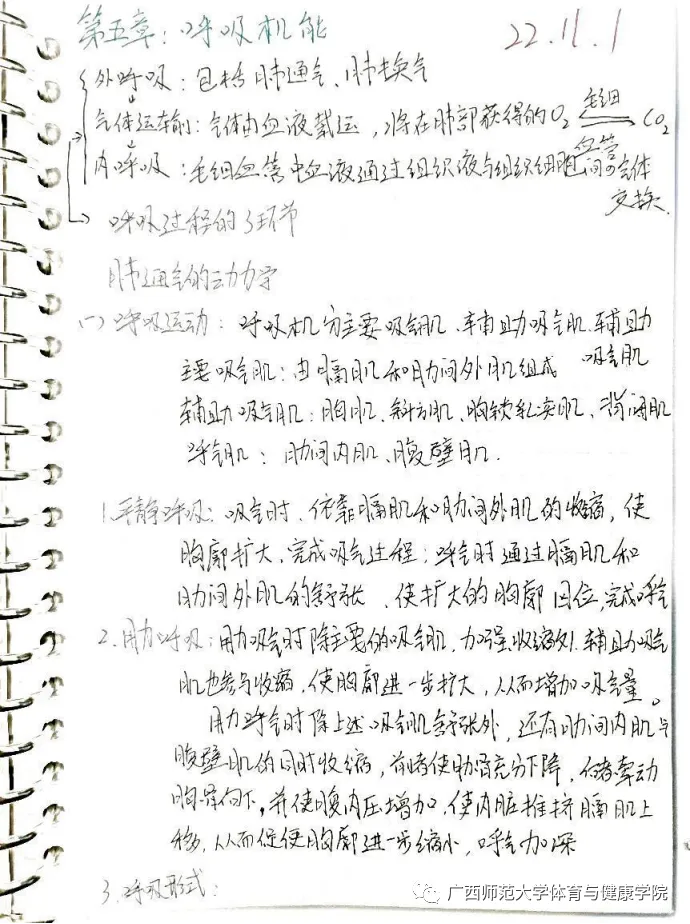 第五章：呼吸机能
22.11.1
外呼吸：包括肺通气、肺换气
气体运输：气体由血液载运，将在肺部获得的O₂ 毛细血管 CO₂
内呼吸：毛细血管中血液通过组织液与组织细胞间的气体交换
呼吸过程的3环节
肺通气的动力学
(一)呼吸运动：呼吸机分主要吸气肌、辅助吸气肌、辅助吸气肌
主要吸气肌：由膈肌和肋间外肌组成
辅助吸气肌：胸肌、斜方肌、胸锁乳突肌、背阔肌
呼气肌：肋间内肌、腹壁肌.
1.平静呼吸：吸气时、依靠膈肌和肋间外肌的收缩，使
胸廓扩大、完成吸气过程；呼气时通过膈肌和
肋间外肌的舒张、使扩大的胸廓回位，完成呼气
2.用力呼吸：用力吸气时除主要的吸气肌，加强收缩外，辅助吸气
肌也参与收缩，使胸廓进一步扩大，从而增加吸气量。
用力呼气时除上述吸气肌舒张外，还有肋间内肌与
腹壁肌的同时收缩，前者使肋骨充分下降，后者牵动
胸骨向下，并使腹内压增加，使内脏推挤膈肌上
移，从而促使胸廓进一步缩小，呼气加深
3.呼吸形式：
广西师范大学体育与健康学院